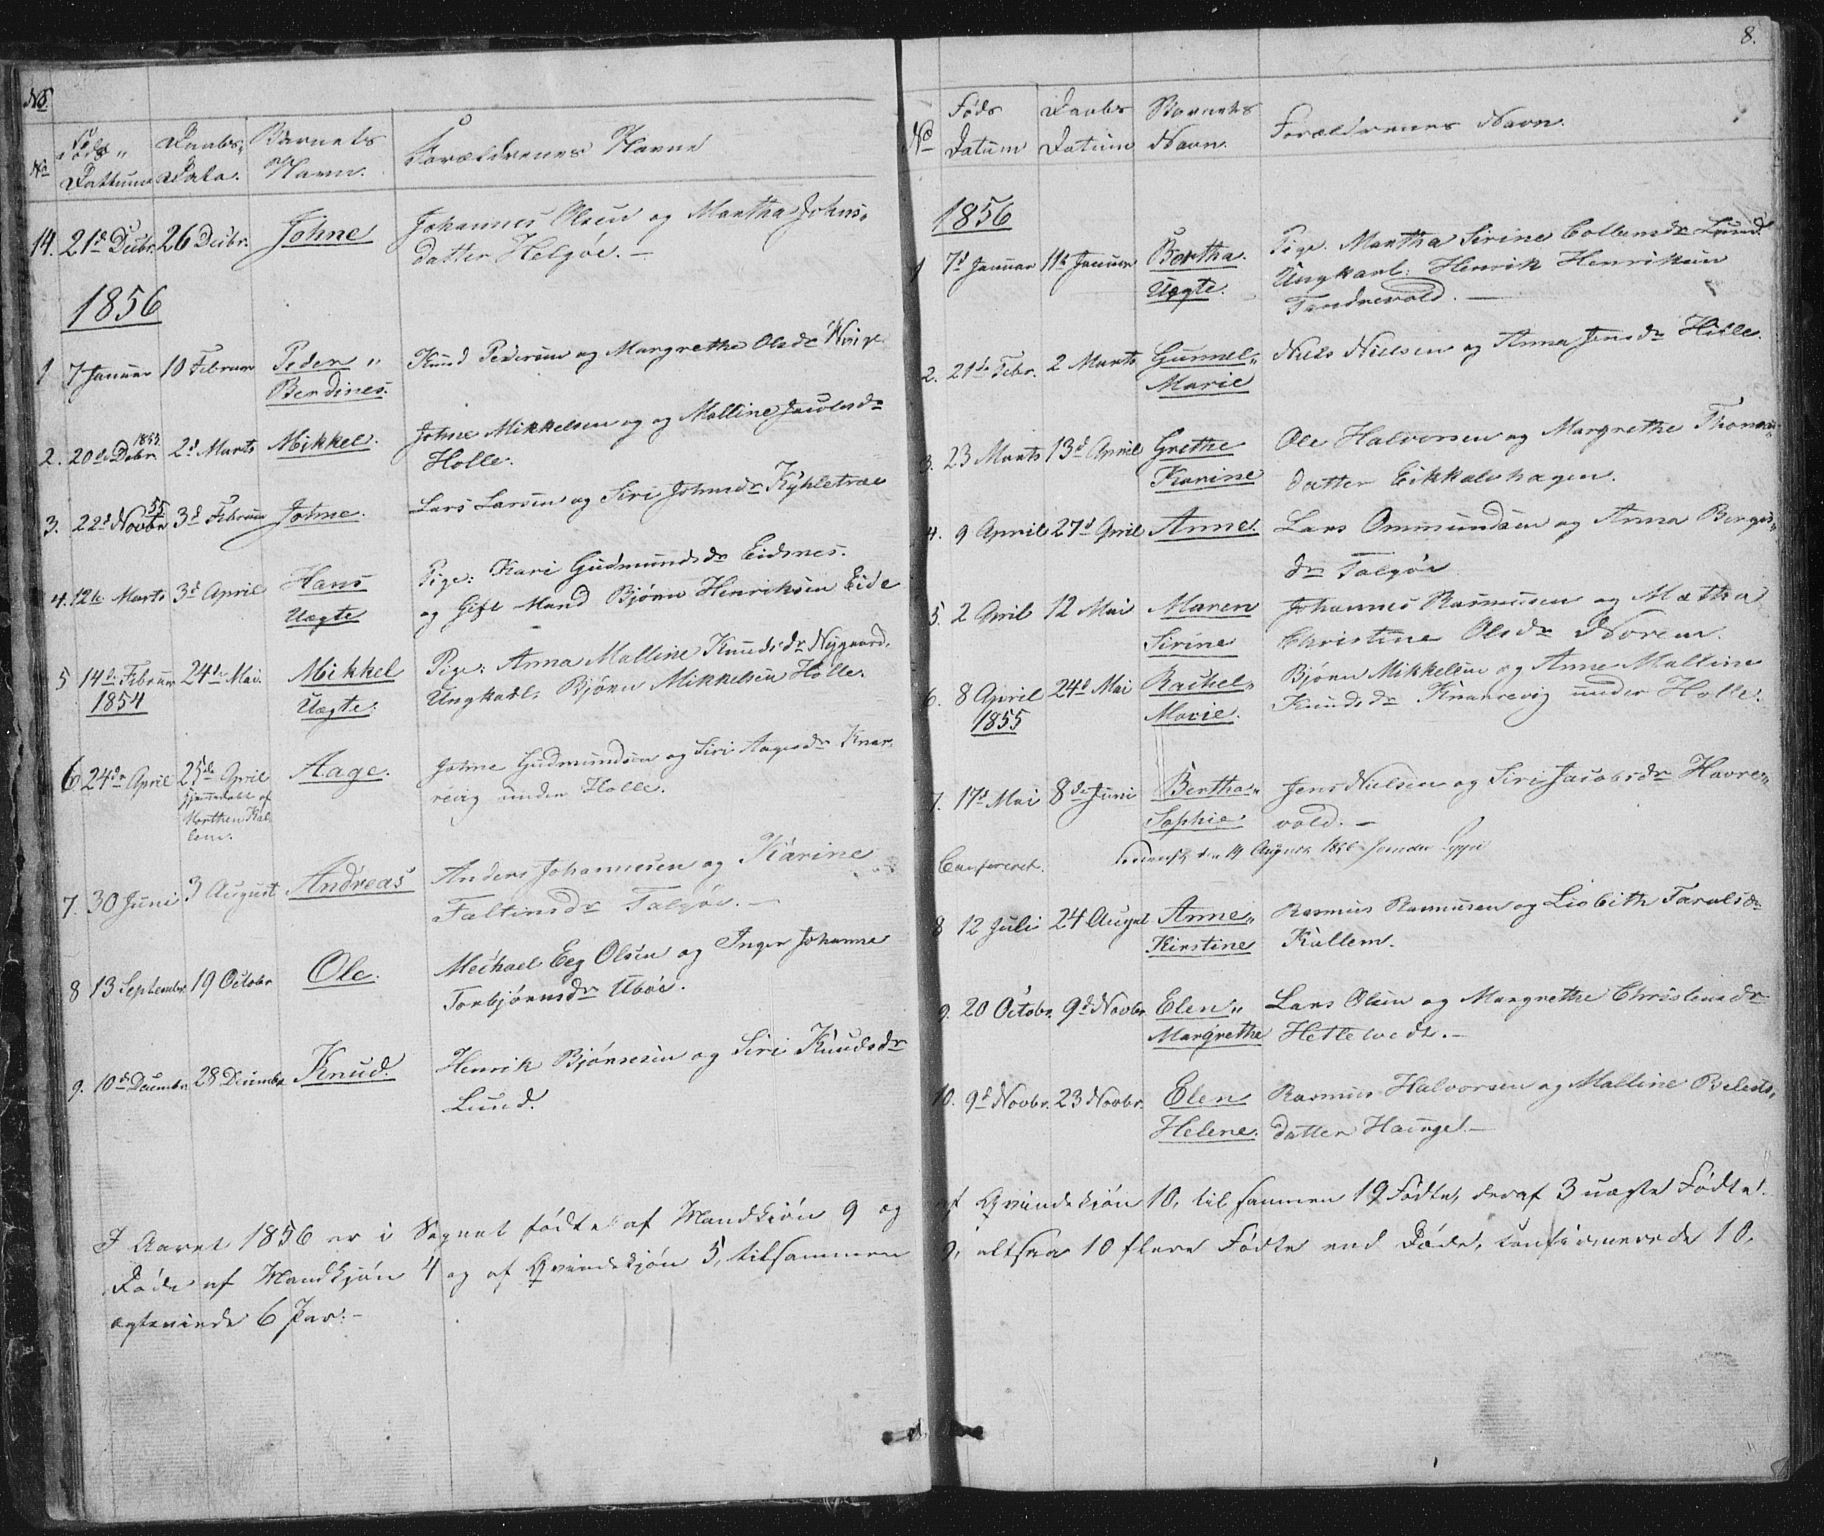 No Føds„ Dattum Daabs„ Data. Barnets Navn. Forældrenes Navne
14. 21d Decbr. 26 Decbr. Johne Johannes Olsen og Martha Johns„
datter Helgøe. –
1856
1 7 Januar 10 Februar Peder„ Knud Pedersen og Margrethe Olsdr
Berdines.
2. 20de Debr 1855 2d Marts Mikkel. Johne Mikkelsen og og Malline Jacobsdr
Holle.
3. 22d Novbr 55 3d Februar Johne. Lars Larsen og Siri Johnsdr Kyhletræe
4. 12te Marts 3d April Hans Pige: Kari Gudmundsdr Eidsnes.
Uægte og Gift Mand Bjørn Henriksen Eide
5 14de Februar 24de Mai. Mikkel Pige: Anna Malline Knudsdr Nygaard.
1854 Uægte. Ungkarl: Bjørn Mikkelsen Holle.
6 24de April 25de April Aage. Johne Gudmundsen og Siri Aagesdr Knar„
hjemmedøbt af revig under Holle.
Morthen Kal„
lem.
7. 30 Juni 3 August Andreas Anders Johannesen og Karine
Faltinsdr Talgøe. –
8 13 September 19 Octobr Ole. Meichael Eeg Olsen og Inger Johanna
Torbjørnsdr Ubøe.
9. 10d Decembr 28 Decembr Knud. Henrik Bjørnsen og Siri Knudsdr
Lund.
I Aaret 1856 er i Sognet fødte af Mandkjøn 9 og
Døde af Mandkjøn 4 og af Qvindekjøn 5, tilsammen
ægteviede 6 Par: –
8.
No Føds Datum Daabs Datum Barnets Navn. Forældrenes Navn.
1856
1 7d Januar 11te Januar Bertha. Pige. Martha Sirine Collensdr Lund
Uægte. Ungkarl: Henrik Henriksen
Tendrevold. –
2. 21de Febr. 2 Marts Gunnel„ Niels Nielsen og Anna Jensdr Hille.
Marie
3. 23 Marts 13d April Grethe Ole Halvorsen og Margrethe Thomas„
Karine datter Eikkelshagen.
4. 9 April 27d April Anne. Lars Ommundsen og Anna Borges„
dr Talgøe
5. 2 April 12 Mai Maren Johannes Rasmusen og Mætha
Sirine Christine Olsdr Norem.
6. 8 April 24d Mai Rachel„ Bjørn Mikkelsen og Anne Malline
1855 Marie. Knudsdr Knarrevig under Holle.
7. 17d Mai 8de Juni Bertha„ Jens Nielsen og Siri Jacobsdr Havre„
Sophie. vold. –
Confereret. den 14 August 1856
8 12 Juli 24 August Anne„ Rasmus Rasmusen og Lisbith Taralsdr
Kirstine Kallem.
9. 20 Octobr. 9d Novbr. Elen„ Lars Olsen og Margrethe Christensdr
Margrethe Hettelvedt. –
10. 9d Novbr. 23 Novbr. Elen Rasmus Halvorsen og Malline Belests„
Helene. datter Hauge. –
af Qvindekjøn 10, til sammen 19 Fødte, deraf 3 uægte Fødte.
9, altsaa 10 flere Fødte end Døde, confirmerede 10.